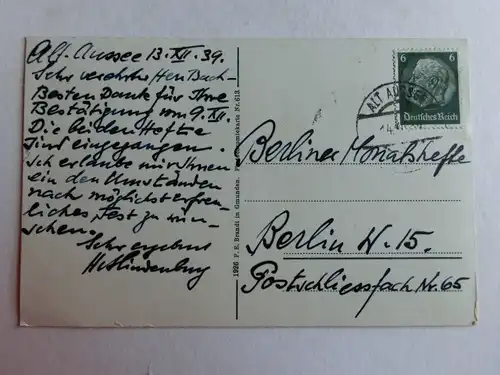 Alt. Aussee 13.XII.39.
Sehr verehrter Herr Bach-
Besten Dank für Ihre
Bestätigung vom 9.XII.
Die beiden Hefte
sind eingegangen.
Ich erlaube mir Ihnen
ein den Umständen
nach möglichst erfreu-
liches Fest zu wün-
schen.
Sehr ergebenst
1926 F. E. Brandt in Gmunden. Nr. 613
6 6
Deutsches Reich
ALT AUSSEE
Berliner Monatshefte
Berlin W. 15.
Postschliessfach Nr. 65